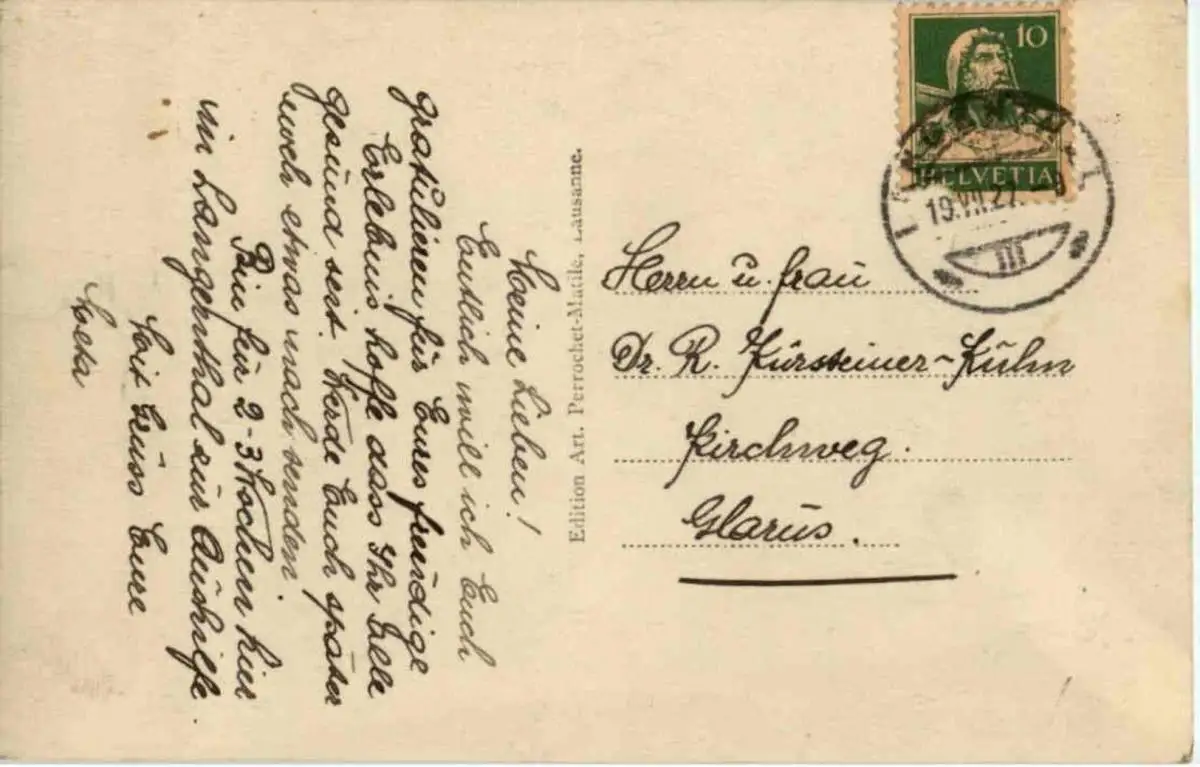 Meine Lieben!
Endlich will ich Euch
gratulieren für Eures freudige
Erlebnis hoffe dass Ihr Alle
gesund seit. Werde Euch später
noch etwas nach senden.
Bin für 2-3 Wochen hier
in Langenthal zur Aushilfe.
Mit Gruss Eure
Meta
Edition Art. Perrochet-Matile, Lausanne.
10
HELVETIA
LANGENTHAL
19.VII.27
III
Herrn u. Frau
Dr. R. Kürsteiner-Kuhn
Kirchweg.
Glarus.